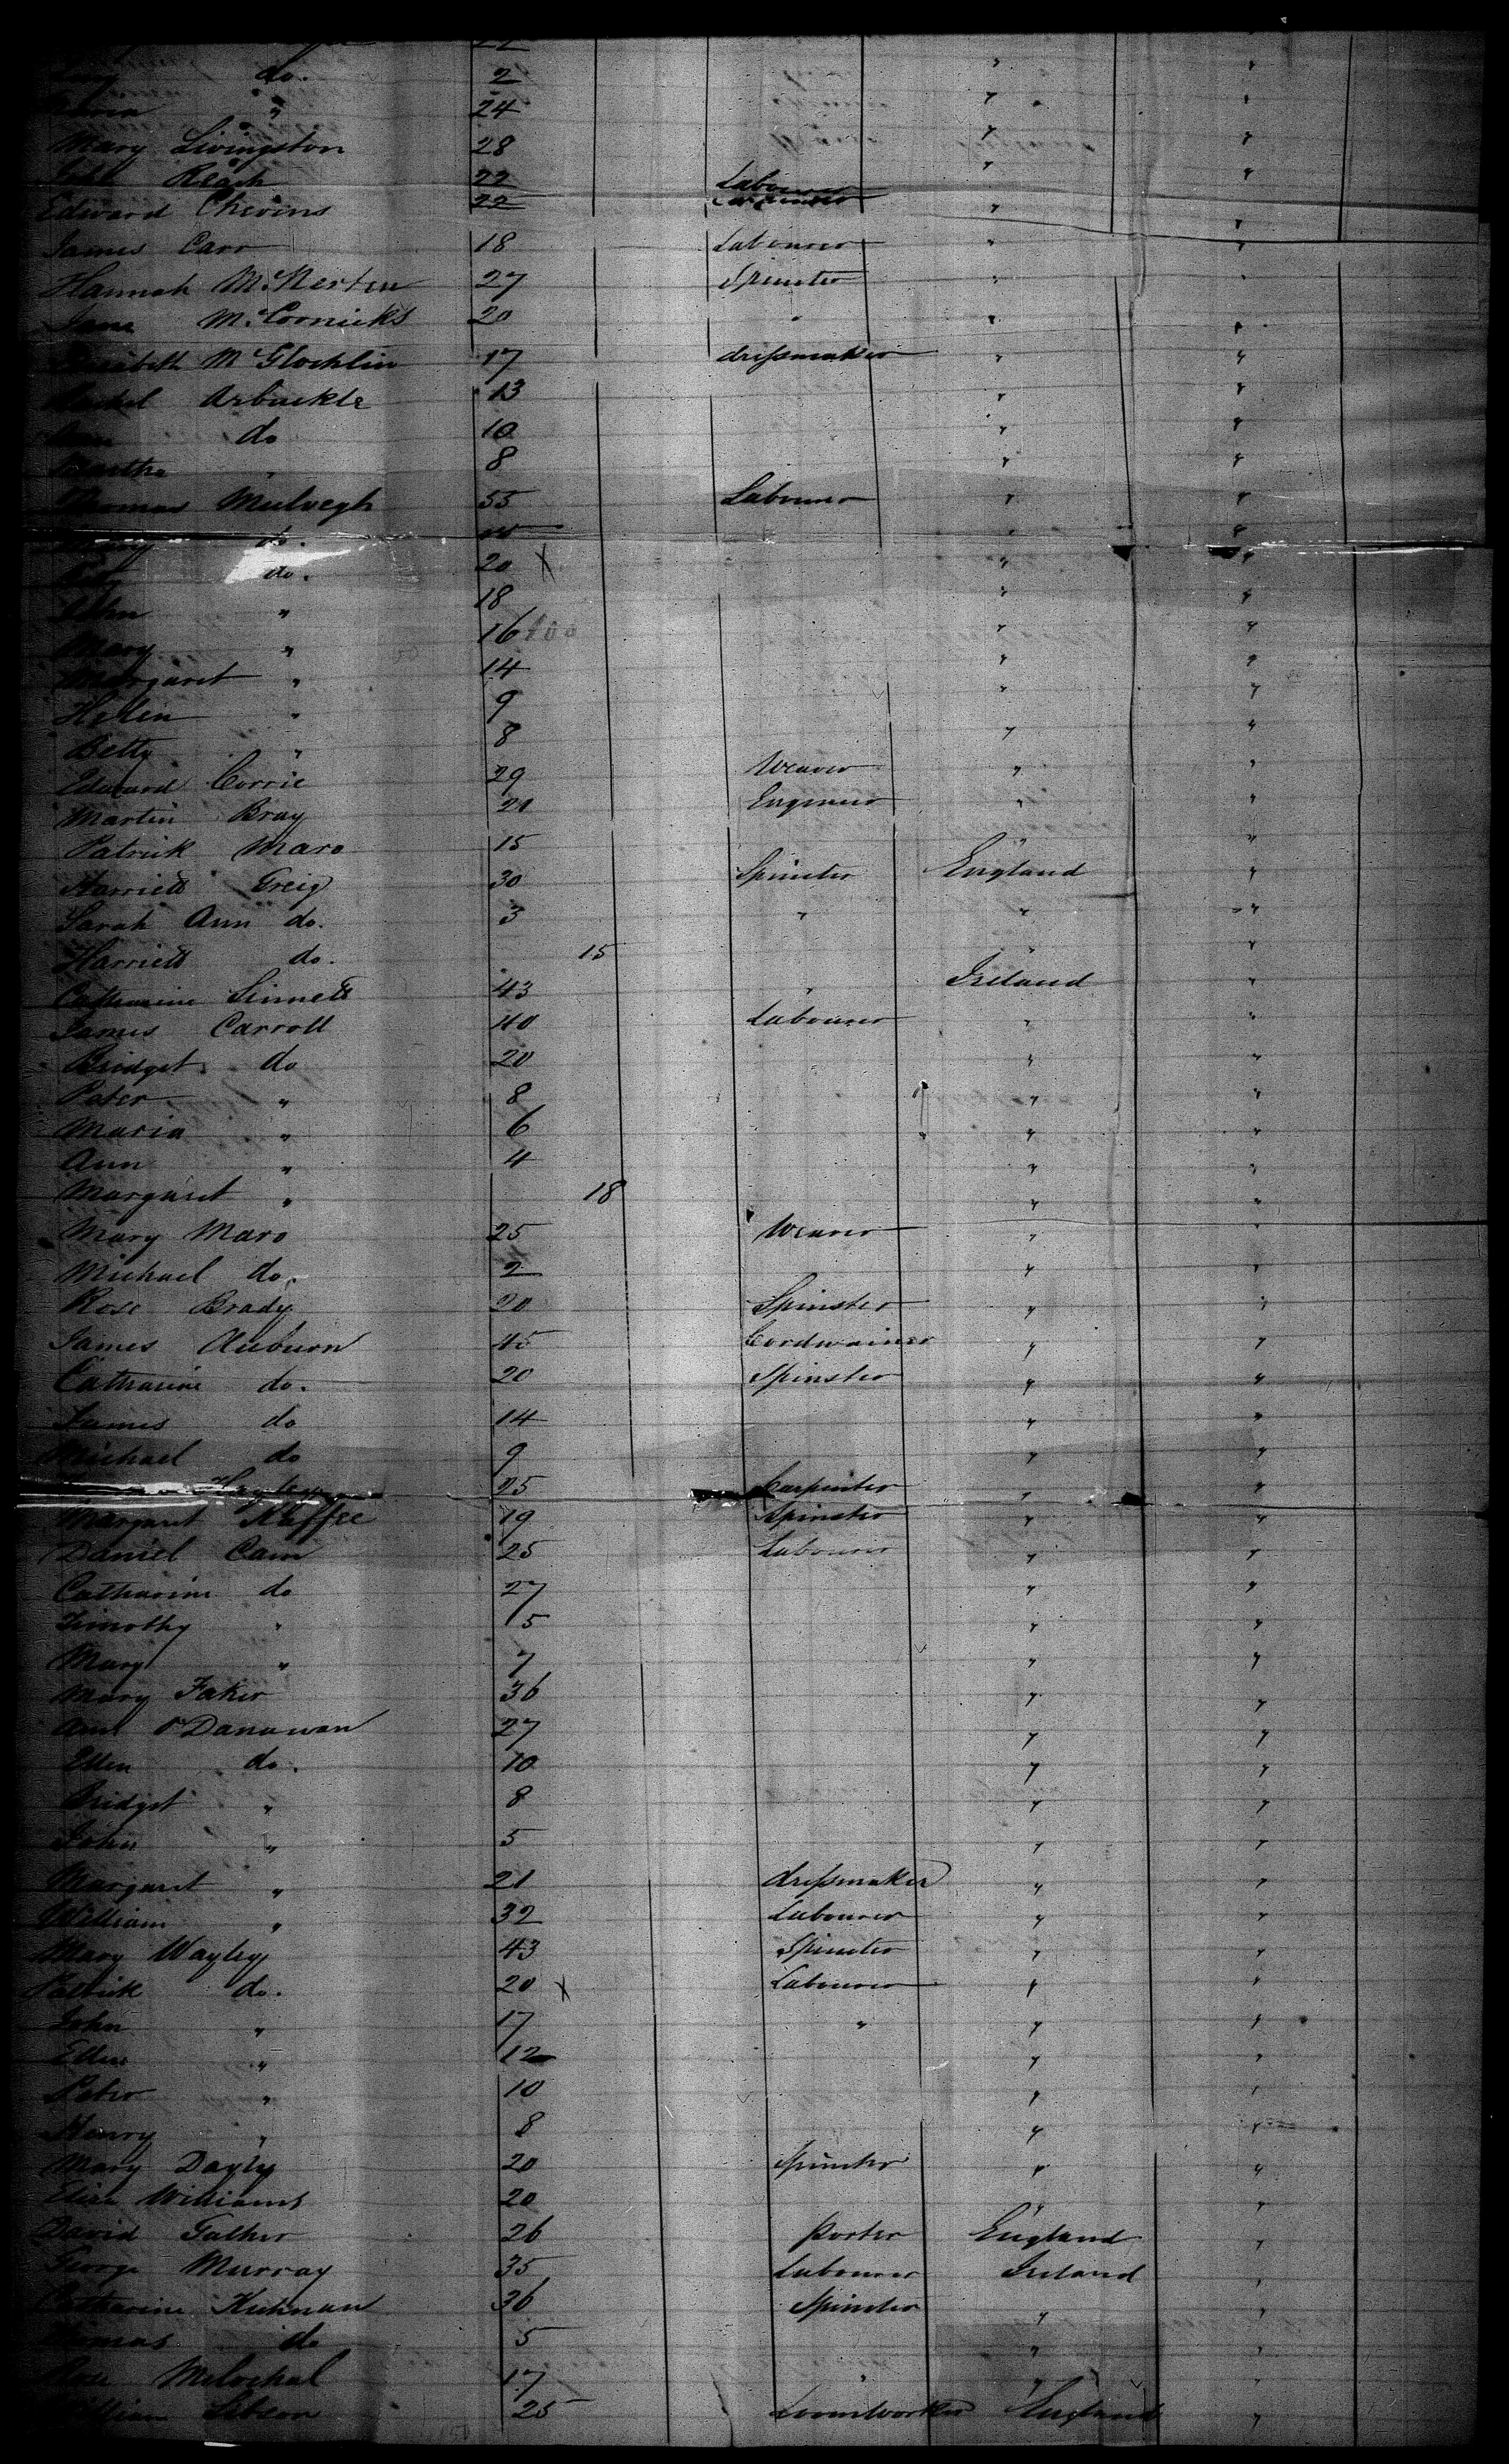 22
do. 2 " "
" 24 " "
Mary Livingston 28 " "
22 Labourer " "
Edward Chevins 22 " "
James Carr 18 Labourer " "
Hannah 27 Spinster " "
Jane McCornicks 20 " " "
McGlochlin 17 drefsmaker " "
Arbuckle 13 " "
do 10 " "
Martha " 8 " "
Thomas Mulvegh 55 Labourer " "
Mary do. " "
do. 20 X " "
John " 18 " "
Mary " 16 " "
Margaret " 14 " "
" 9 " "
Betty " 8 " "
Edward Corrie 29 Weaver " "
Martin Bray 21 Engineer " "
Patrick Maro 15 " "
Harriett Greig 30 Spinster England "
Sarah Ann do. 3 " " "
Harriett do. 15 " "
Catharine Sinnett 43 " Ireland "
James Carroll 40 Labourer " "
Bridget do 20 " "
Peter " 8 " "
Maria " 6 " "
Ann " 4 " "
Margaret " 18 " "
Mary Maro 25 Weaver " "
Michael do. 2 " "
Rose Brady 20 Spinster " "
James Auburn 45 Cordwainer " "
Catharine do. 20 Spinster " "
James do 14 " "
Michael do 9 " "
25 Carpenter " "
Margaret Keffee 19 Spinster " "
Daniel Cain 25 Labourer " "
Catharine do 27 " "
Timothy " 5 " "
Mary " 7 " "
Mary Faker 36 " "
Ann O'Danawan 27 " "
Ellen do. 10 " "
Bridget " 8 " "
John " 5 " "
Margaret " 21 drefsmaker " "
William " 32 Labourer " "
Mary Wayley 43 Spinster " "
Patrick do. 20 X Labourer " "
John " 17 " " "
Ellen " 12 " "
Peter " 10 " "
Henry " 8 " "
Mary Dayly 20 Spinster " "
Eliza Williams 20 " "
David Father 26 Porter England "
George Murray 35 Labourer Ireland "
Catharine 36 Spinster " "
Thomas do 5 " "
Rose 17 " " "
William 25 Loomworker England "